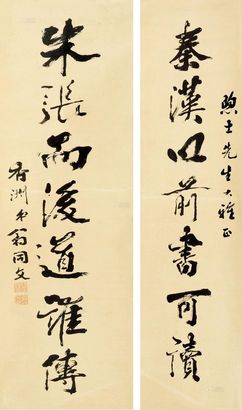 煦士先生大雅正
秦漢以前書可讀
朱張而後道誰傳
翁同文